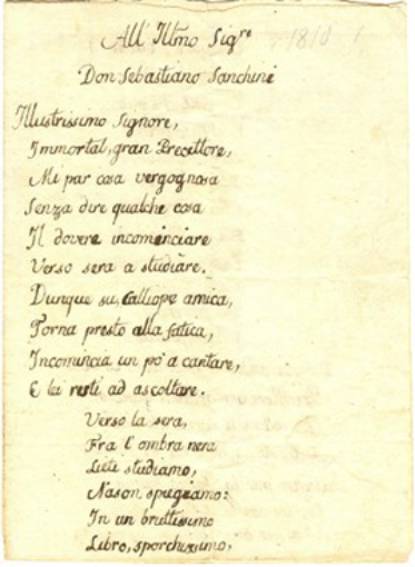 All' Illmo Sigre 1810
Don Sebastiano Sanchini
Illustrissimo Signore,
Immortal, gran Precettore,
Mi par cosa vergognosa
Senza dire qualche cosa
Il dovere incominciare
Verso sera a studiare.
Dunque su, Calliope amica,
Torna presto alla fatica,
Incomincia un po' a cantare,
E lei resti ad ascoltare.
Verso la sera,
Fra l'ombra nera
Lieti studiamo,
Nason spieghiamo:
In un bruttissimo
Libro, sporchissimo,